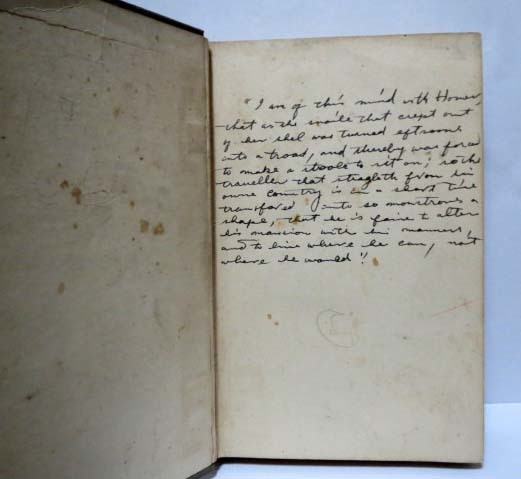 "I am of this mind with Homer,
that as the snaile that crept out
of her shel was turned eftsoones
into a toad, and thereby was forced
to make a stoole to sit on; so the
traveller that stragleth from his
owne country is in a short time
transformed into so monstrous a
shape, that he is faine to alter
his mansion with his manners,
and to live where he can, not
where he would".